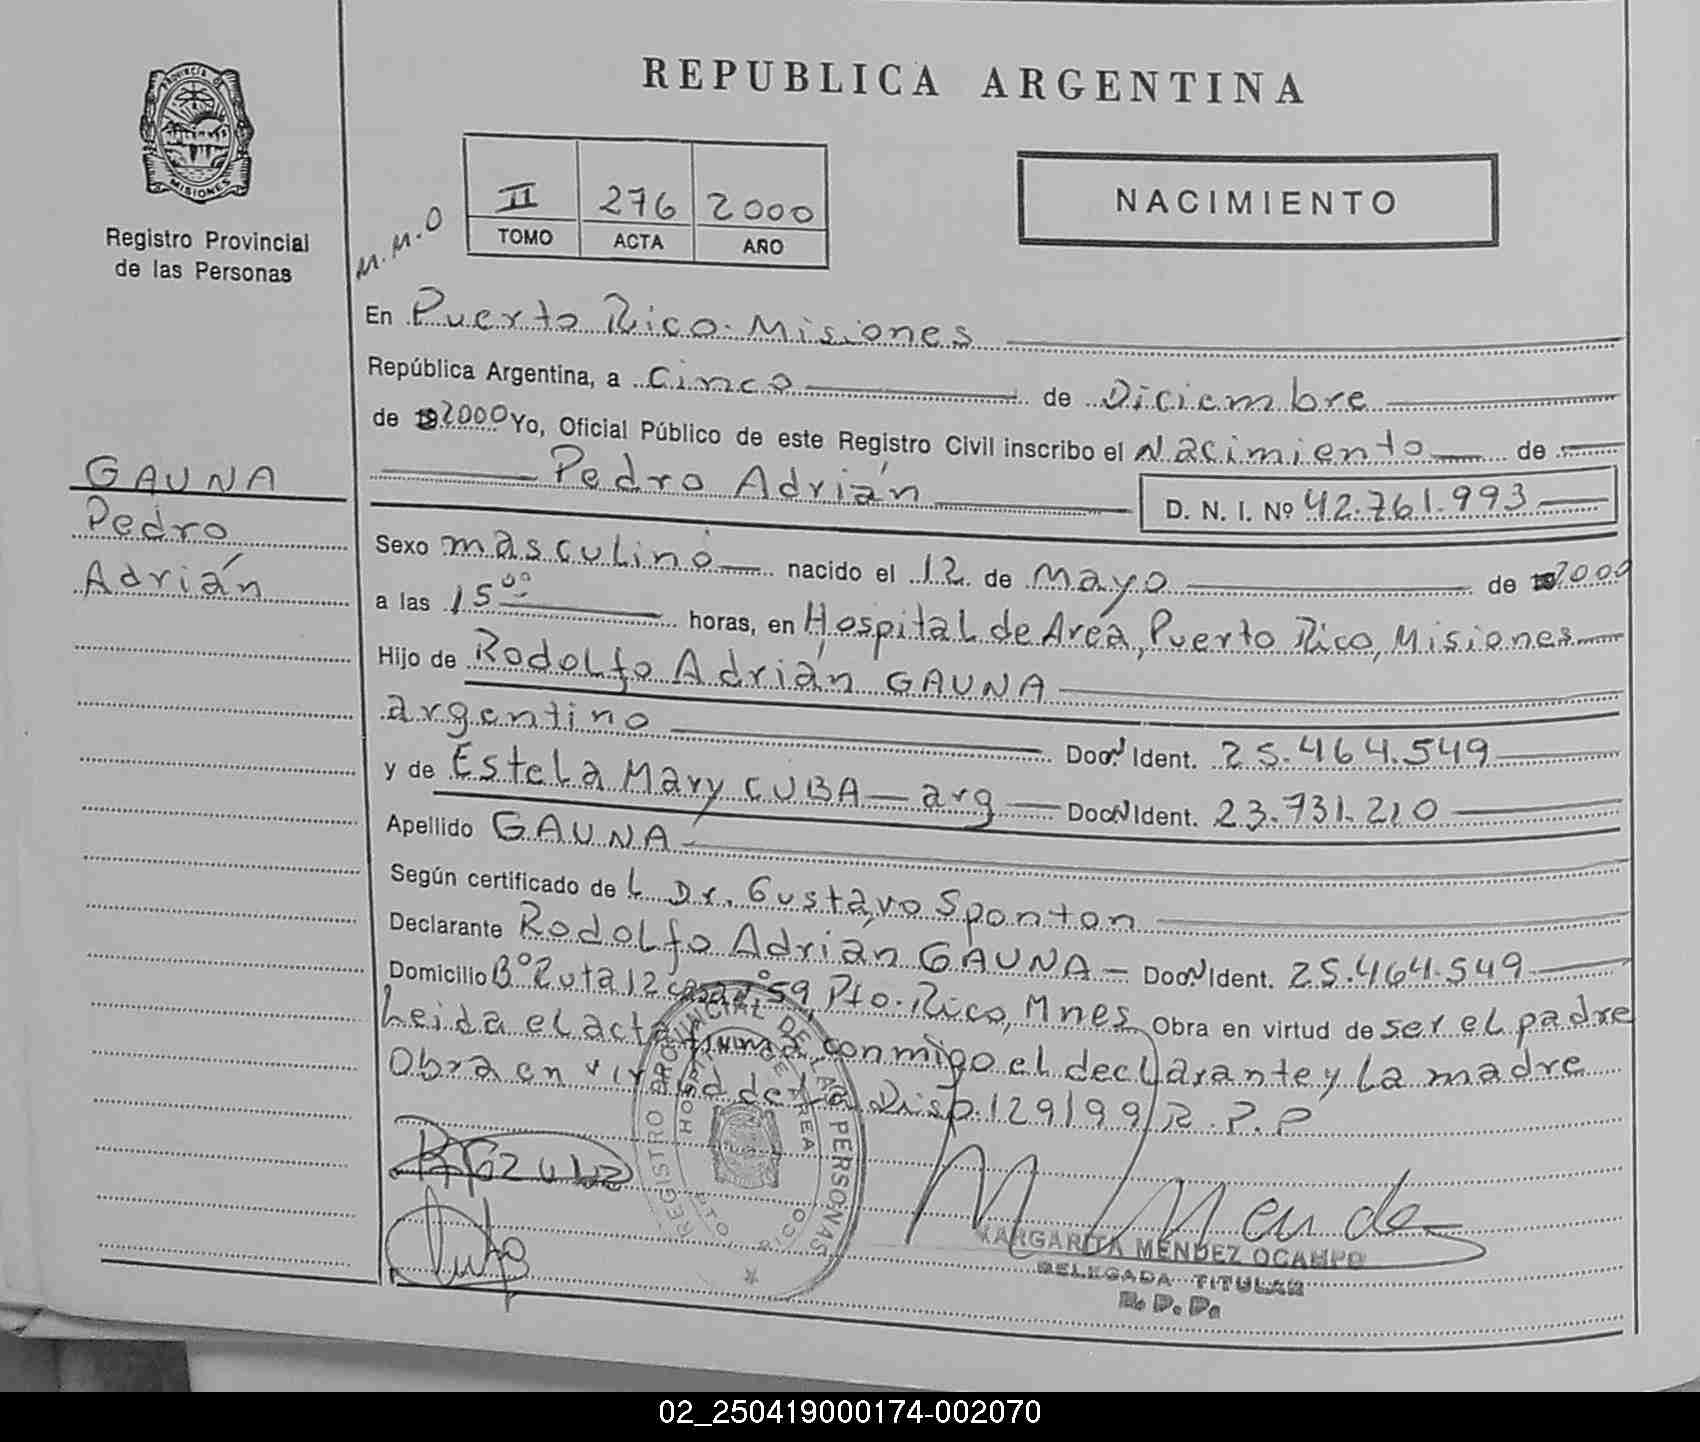 REPUBLICA ARGENTINA
PROVINCIA DE
MISIONES
Registro Provincial
de las Personas
M.M.O
II 276 2000
TOMO ACTA AÑO
NACIMIENTO
En Puerto Rico. Misiones
República Argentina, a Cinco de Diciembre
de 2000 Yo, Oficial Público de este Registro Civil inscribo el Nacimiento de
Pedro Adrián D. N. I. Nº 42.761.993
GAUNA
Pedro
Adrián
Sexo masculino nacido el 12 de Mayo de 2000
a las 15 00 horas, en Hospital de Area, Puerto Rico, Misiones
Hijo de Rodolfo Adrián GAUNA
argentino Doc. Ident. 25.464.549
y de Estela Mary CUBA — arg — Doc. Ident. 23.731.210
Apellido GAUNA
Según certificado de L Dr. Gustavo Sponton
Declarante Rodolfo Adrián GAUNA — Doc. Ident. 25.464.549
Domicilio Bº Ruta 12 casa 59, Pto. Rico, Mnes Obra en virtud de ser el padre
Leida el acta firma conmigo el declarante y la madre
Obra en virtud de la Disp. 129/99 R.P.P
REGISTRO PROVINCIAL DE LAS PERSONAS
HOSPITAL DE AREA
PTO. RICO
M Mendez
MARGARITA MENDEZ OCAMPO
DELEGADA TITULAR
R. P. P.
02_250419000174-002070